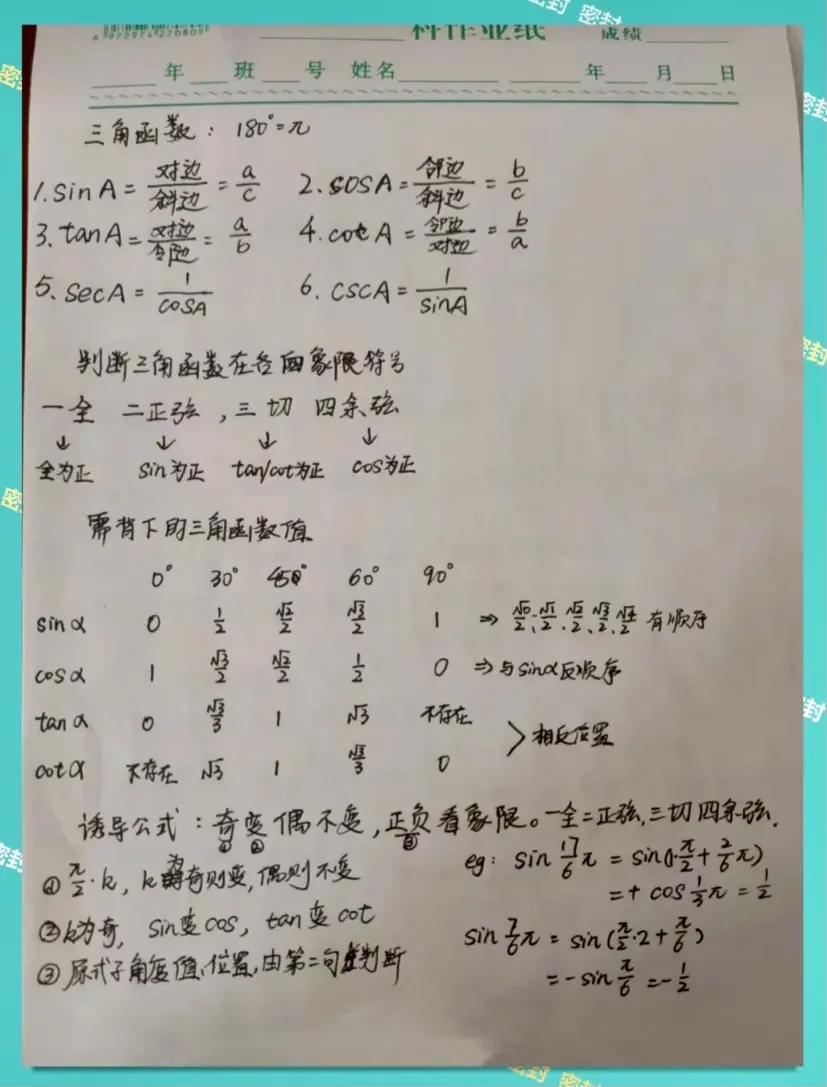 密封 密封
6 972974 220809
科作业纸 成绩
年 班 号 姓名 年 月 日
三角函数: 180°=π
1. sinA = 对边/斜边 = a/c 2. cosA = 邻边/斜边 = b/c
3. tanA = 对边/邻边 = a/b 4. cotA = 邻边/对边 = b/a
5. secA = 1/cosA 6. cscA = 1/sinA
判断三角函数在各自象限符号
一全 二正弦, 三切 四余弦
↓ ↓ ↓ ↓
全为正 sin为正 tan/cot为正 cos为正
需背下的三角函数值
0° 30° 45° 60° 90°
sinα 0 1/2 √2/2 √3/2 1 ⇒ √0/2、√1/2、√2/2、√3/2、√4/2 有顺序
cosα 1 √3/2 √2/2 1/2 0 ⇒与sinα反顺序
tanα 0 √3/3 1 √3 不存在
>相反位置
cotα 不存在 √3 1 √3/3 0
诱导公式: 奇变偶不变, 正负看象限。一全二正弦, 三切四余弦.
① ② ③
① π/2·k, k为奇则变, 偶则不变
② k为奇, sin变cos, tan变cot
③ 原式子角度值、位置, 由第二句判断
eg: sin 17/6 π = sin( π/2 + 2/6 π)
= + cos 1/3 π = 1/2
sin 7/6 π = sin(π/2·2 + π/6)
= -sin π/6 = -1/2
密封
密封
密封
密封
密封